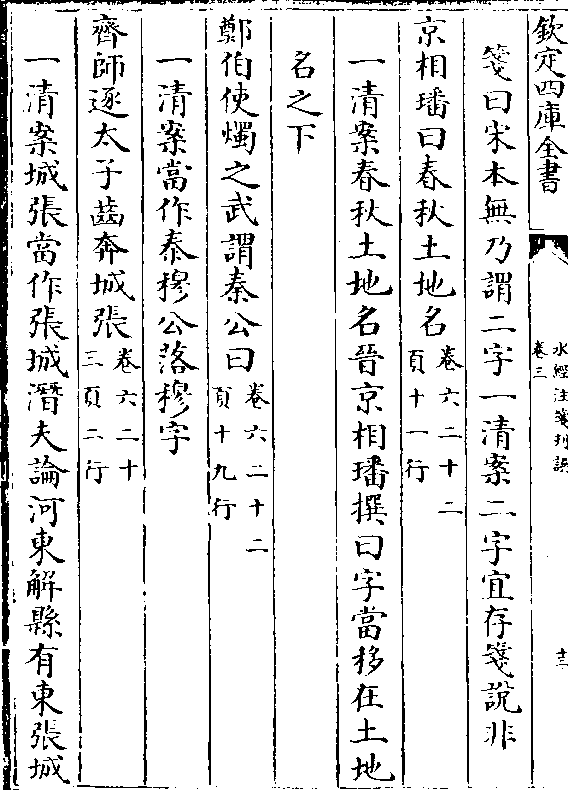 欽定四庫全書
水經注箋刊誤
卷三
十三
箋曰宋本無乃謂二字一清案二字宜存箋說非
京相璠曰春秋土地名卷六二十二頁十一行
一清案春秋土地名晉京相璠撰曰字當移在土地
名之下
鄭伯使燭之武謂秦公曰卷六二十二頁十九行
一清案當作秦穆公落穆字
齊師逐太子齒奔城張卷六二十三頁二行
一清案城張當作張城潛夫論河東解縣有東張城